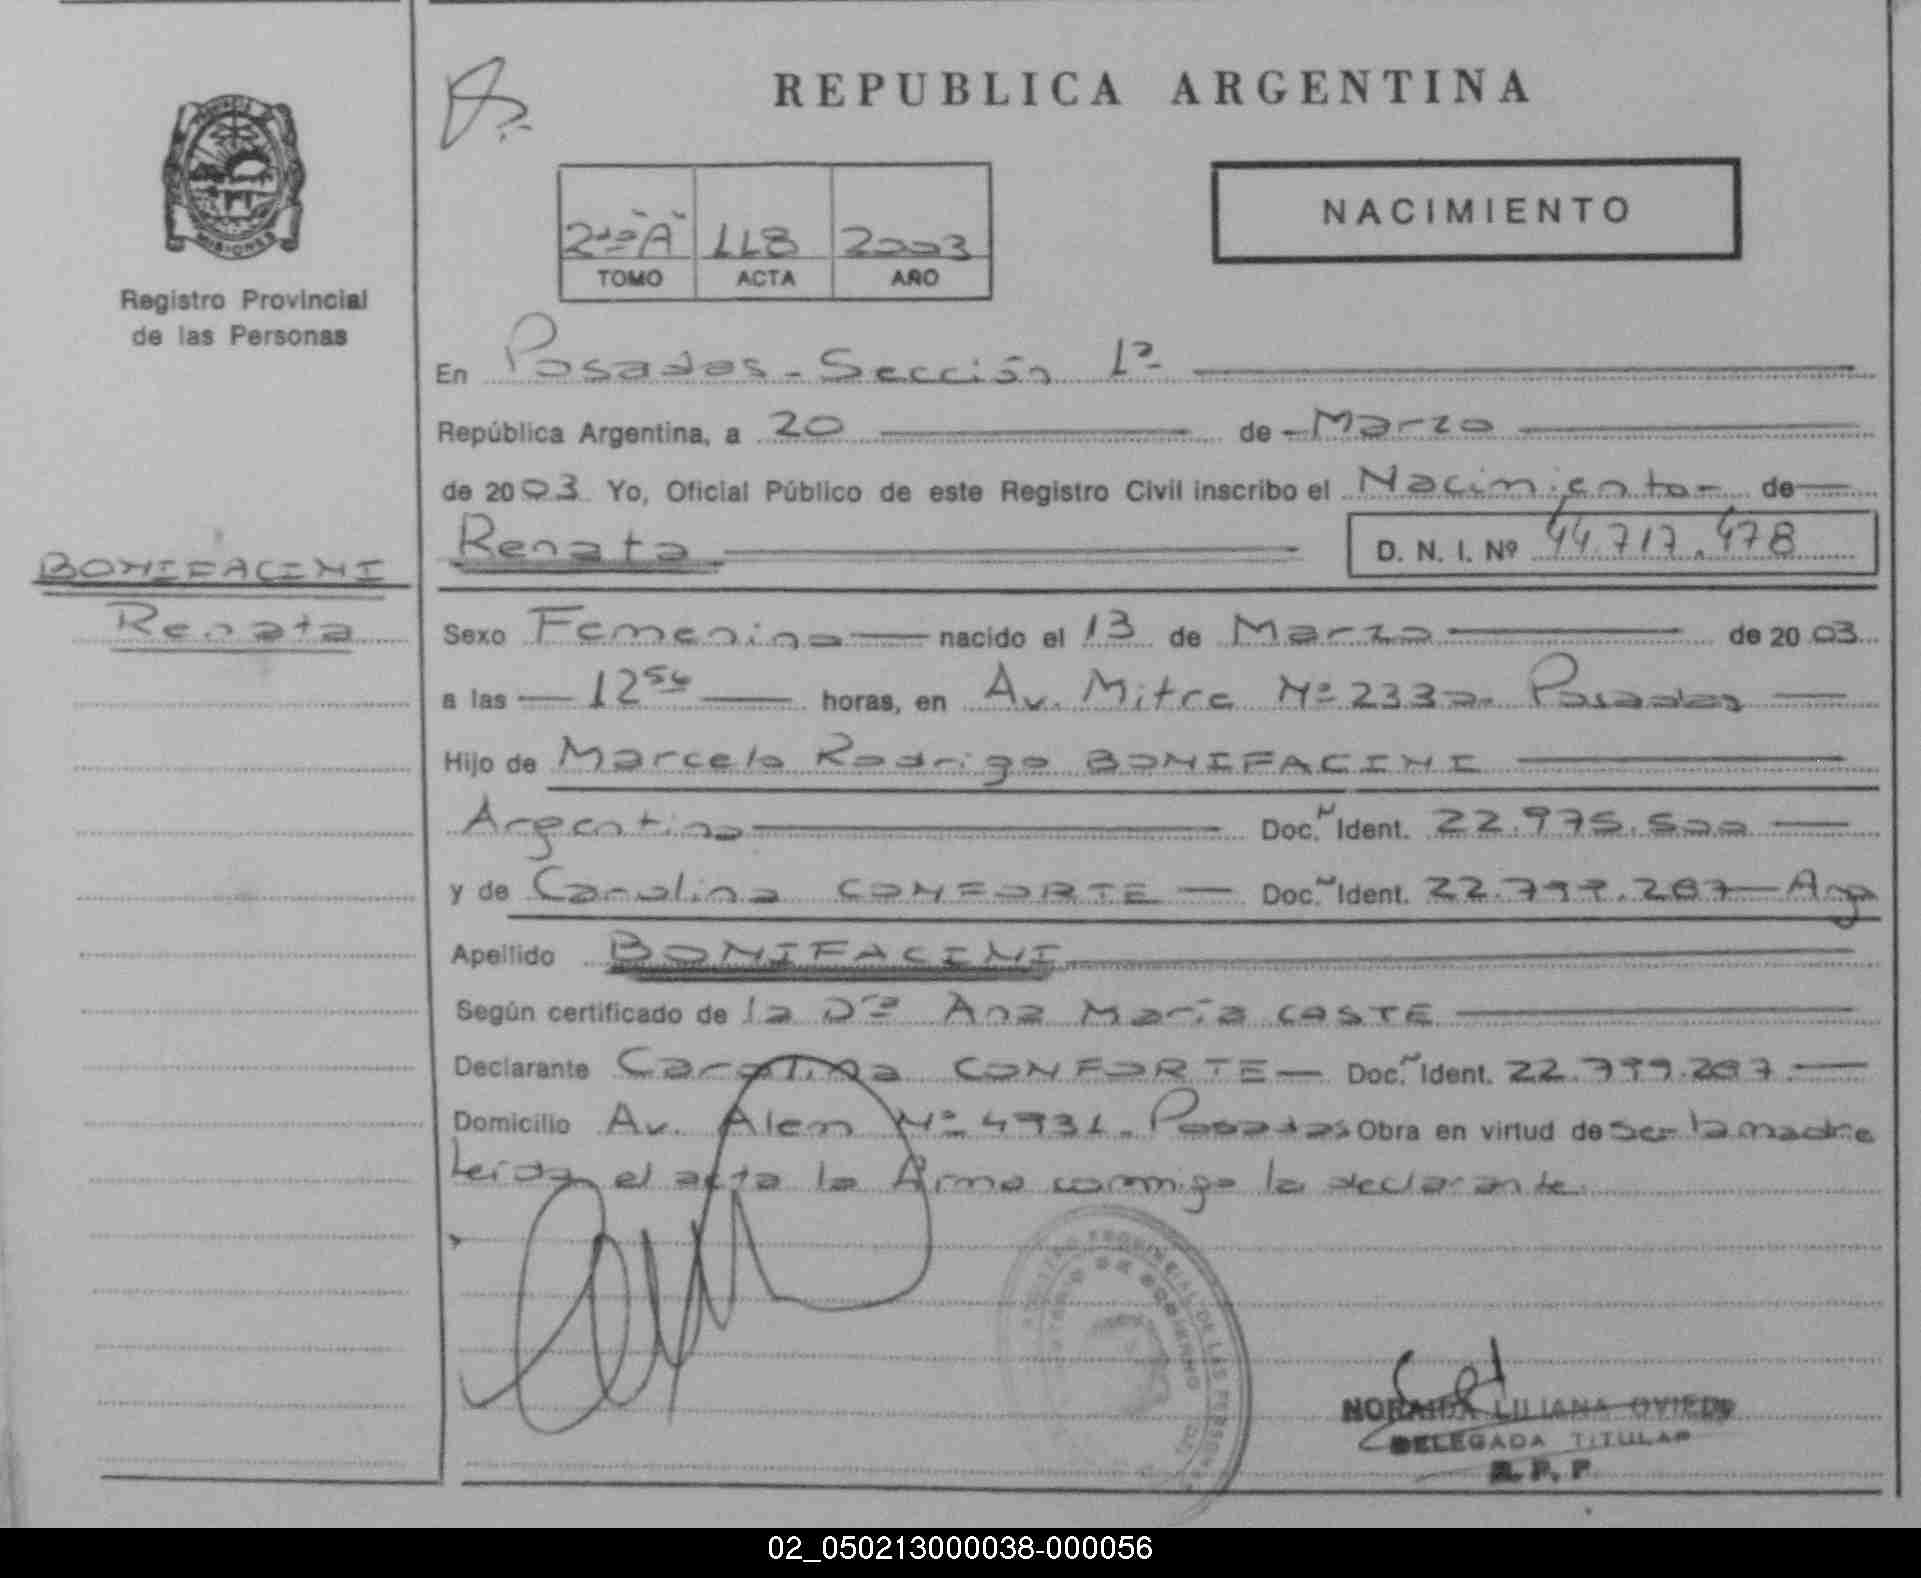 REPUBLICA ARGENTINA
PROVINCIA
MISIONES
Registro Provincial
de las Personas
2do "A" 118 2003
TOMO ACTA AÑO
NACIMIENTO
En Posadas - Sección 1ª
República Argentina, a 20 de Marzo
de 2003 Yo, Oficial Público de este Registro Civil inscribo el Nacimiento de
Renata D. N. I. Nº 44.717.478
BONIFACINI
Renata
Sexo Femenino nacido el 13 de Marzo de 2003
a las 12 54 horas, en Av. Mitre Nº 2330 - Posadas
Hijo de Marcelo Rodrigo BONIFACINI
Argentino Doc. N Ident. 22.975.500
y de Carolina CONFORTE Doc. N Ident. 22.799.287 Arg
Apellido BONIFACINI
Según certificado de la Dra Ana María CASTE
Declarante Carolina CONFORTE Doc. N Ident. 22.799.287
Domicilio Av. Alem Nº 4931 - Posadas Obra en virtud de ser la madre
Leida el acta la firma conmigo la declarante
REGISTRO PROVINCIAL DE LAS PERSONAS
NORAIDA LILIANA OVIEDO
DELEGADA TITULAR
R. P. P
02_050213000038-000056